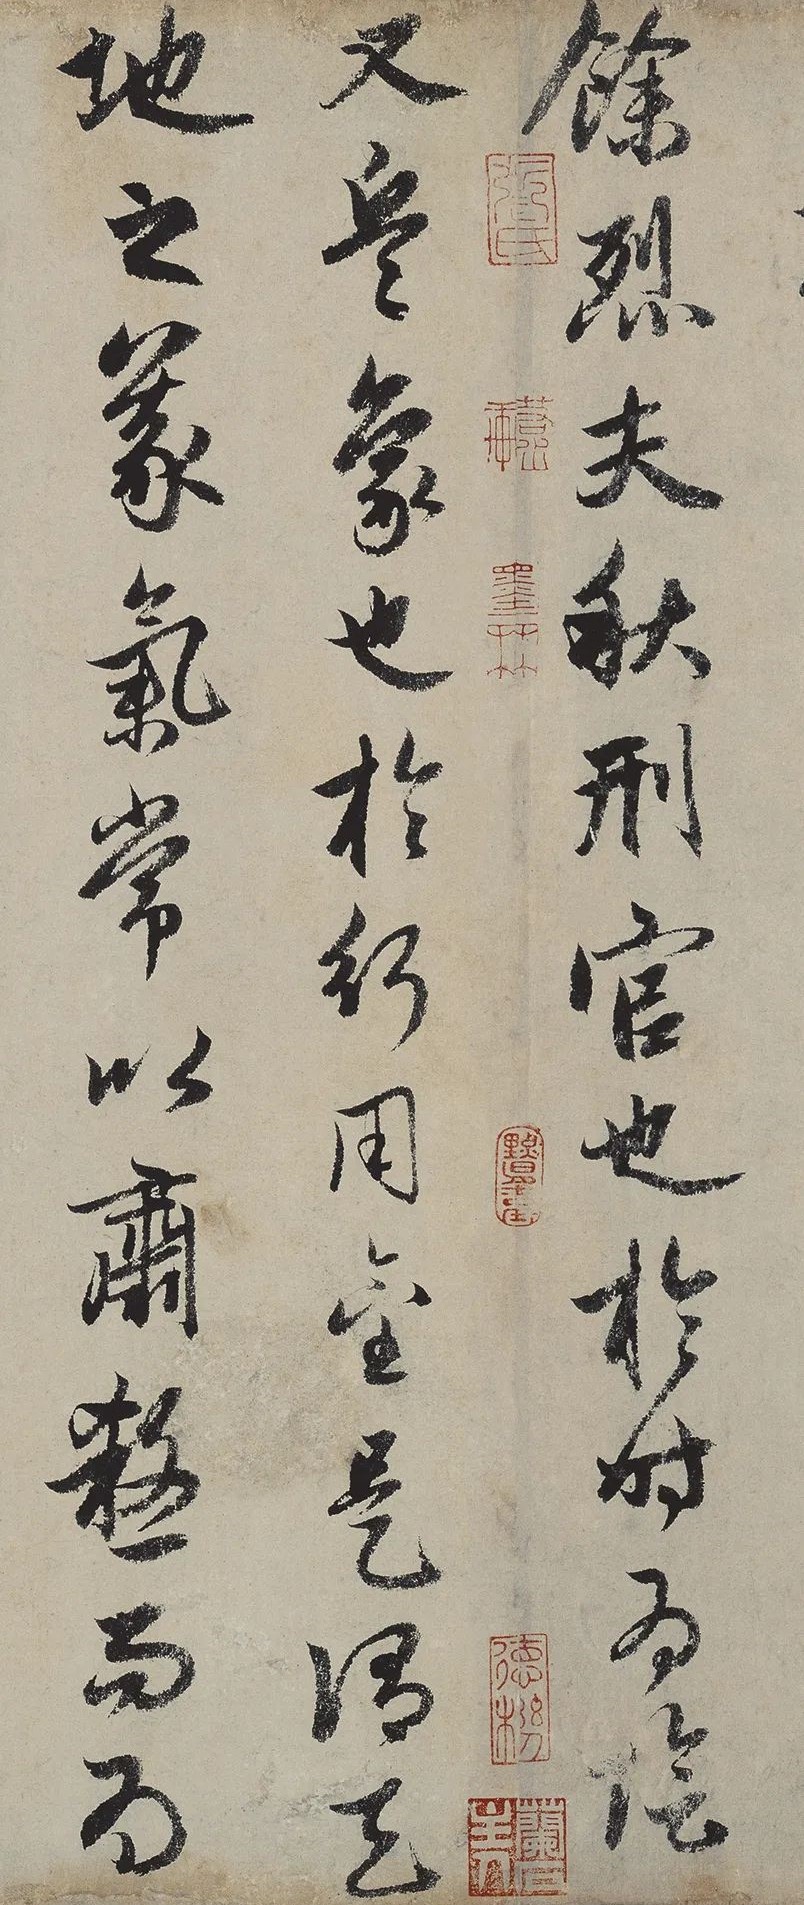 餘烈夫秋刑官也於時為陰
墨林
又兵象也於行用金是謂天
地之義氣常以肅殺而為